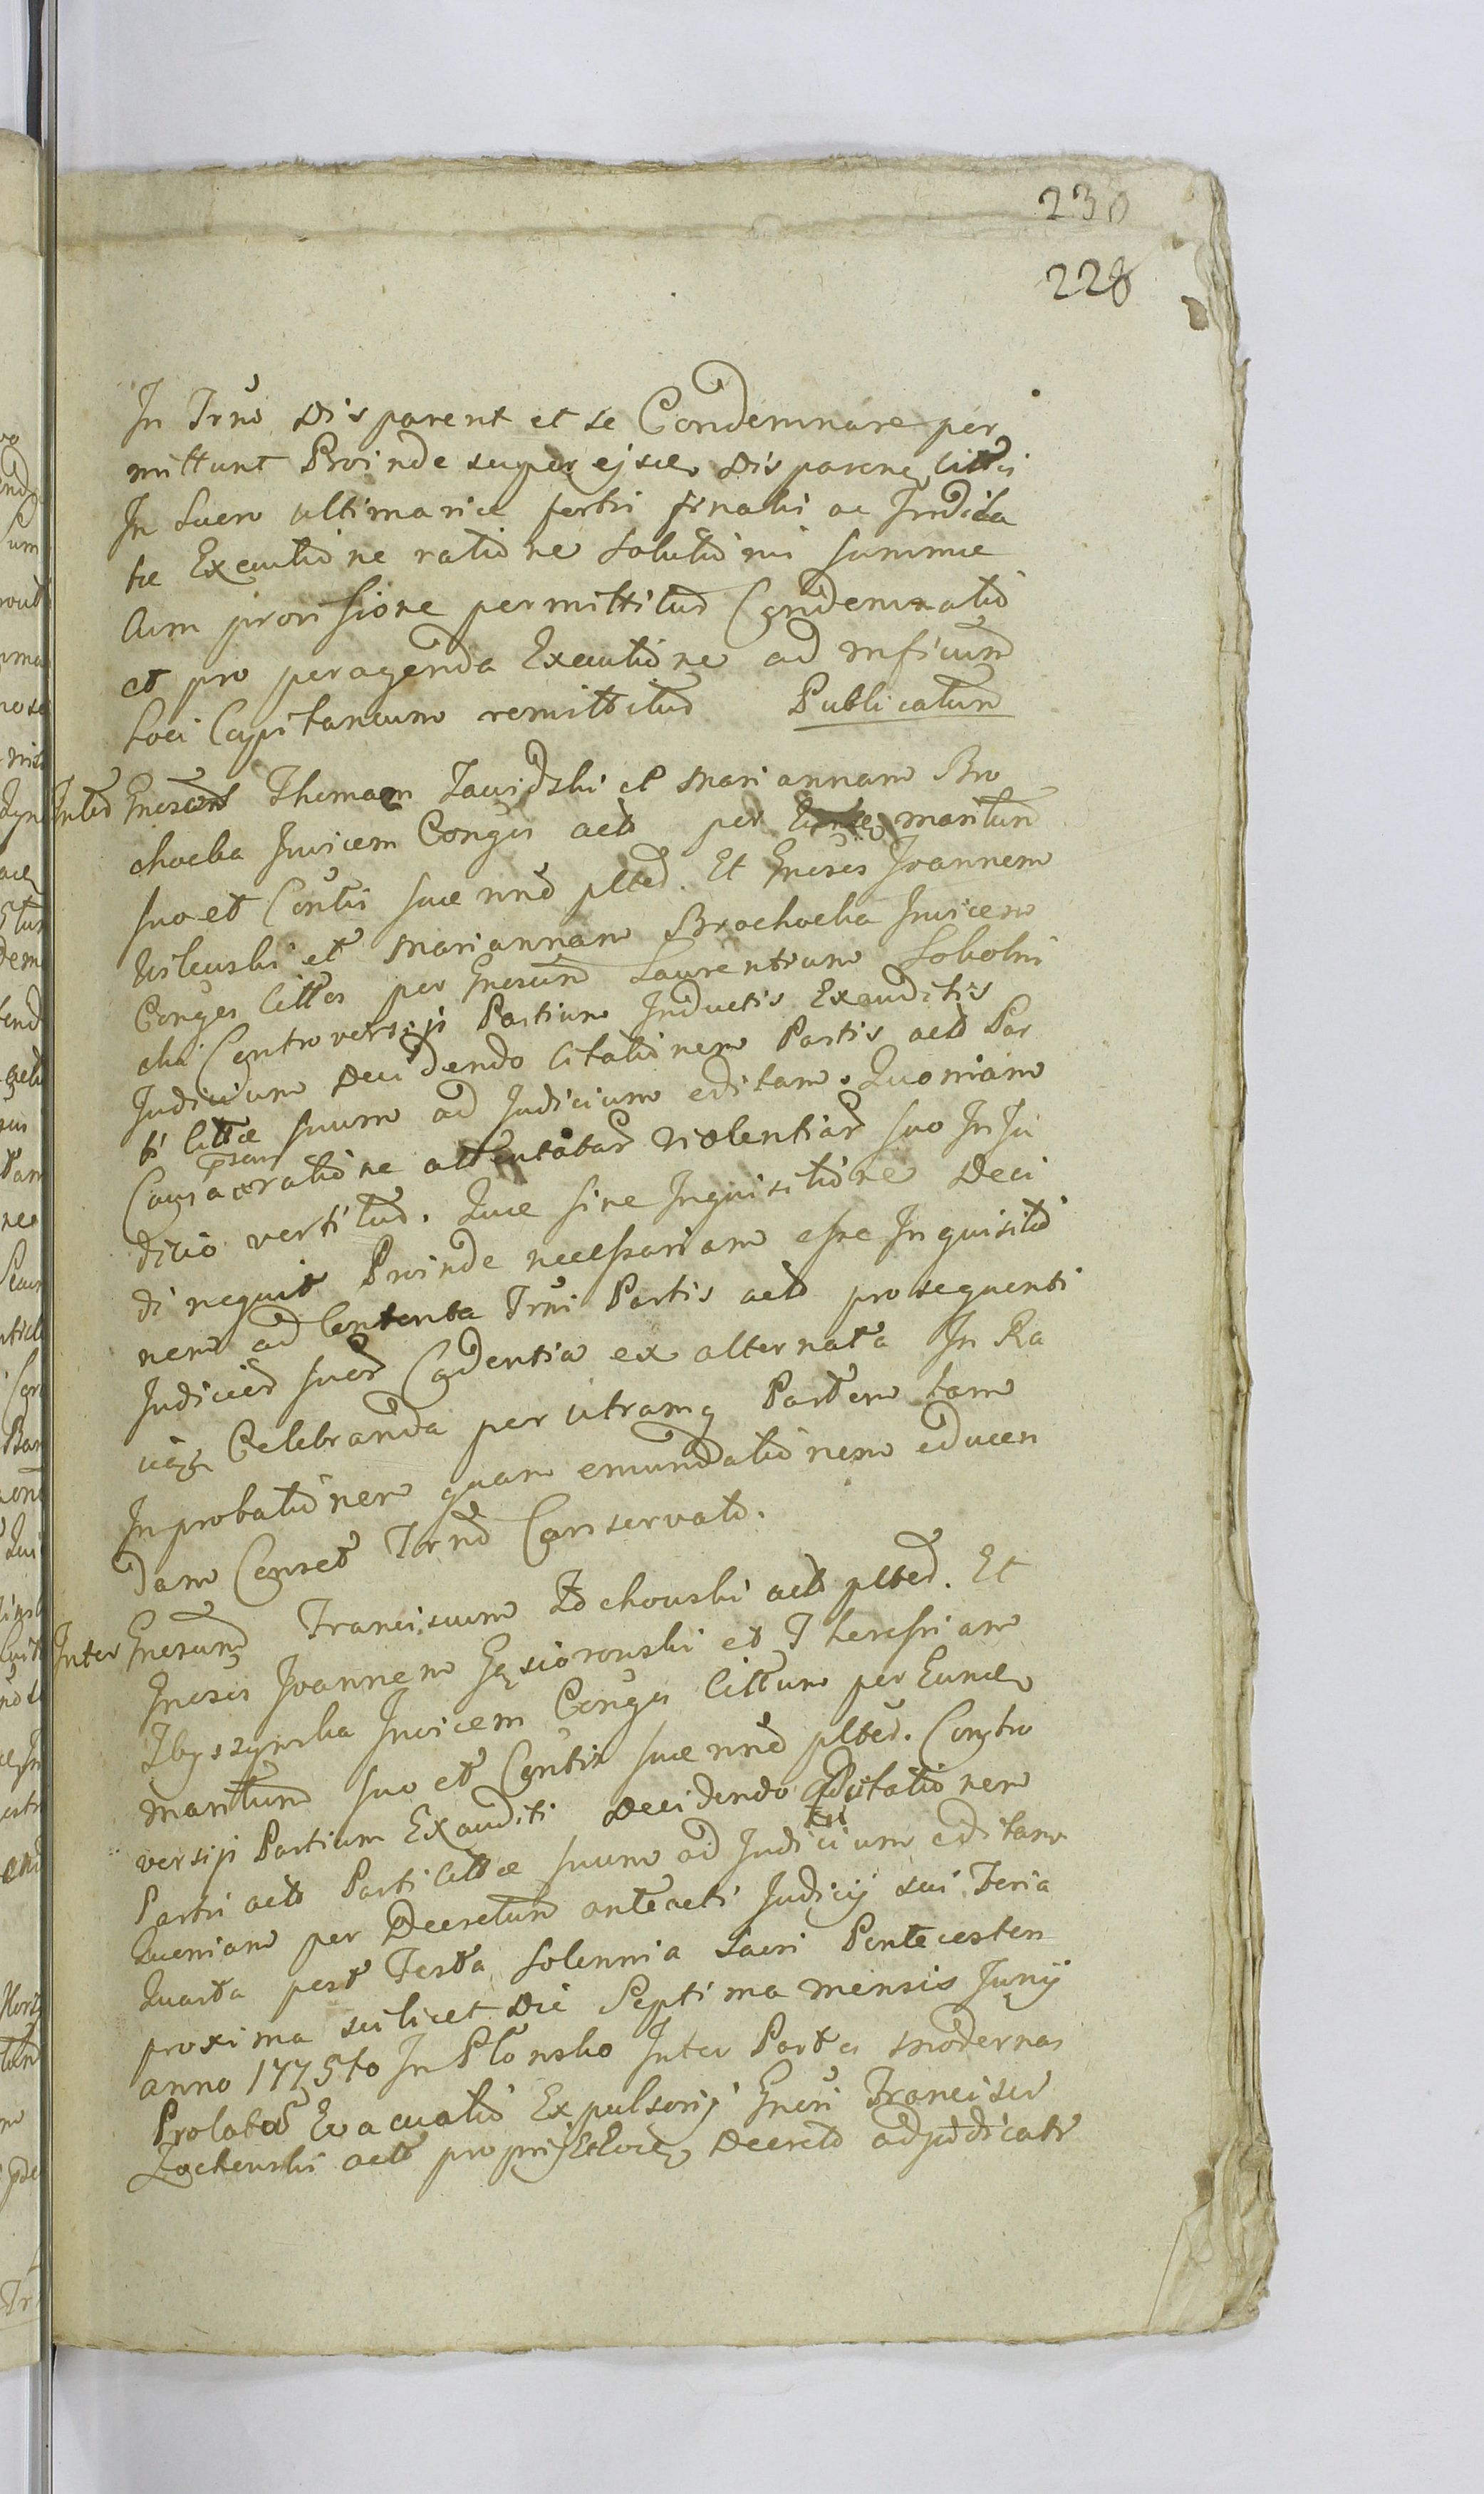 230
228
In Trno Disparent et se Condemnare per
mittunt Proinde super ejsdem Disparene Cittis
In Lucro ultimarie partis finalis ac Indila
tae Executione ratione Solutionis summae
Cum provisione permittitur Condemnatio
et pro peragenda Executione ad mficum
Loci Capitaneum remittitur Publicatum
Inter Gnosum Thomam Zawidzki et Mariannam Bro
chocka Invicem Conges acto per maritum
suo et Contis suae nne plted. Et Gnosos Joannem
Wilewski et Mariannam Brochocka Invicem
Conges Cittos per Gnosum Laurentium Sokolni
cki Controversijs Partium Inductis Exauditis
Judicium Decidendo Citationem Partis acto Par
ti Cittae suum ad Judicium editam. Quoniam
Causa ratione attentatar Violentiar suo In Ju
dicio vertitur. Quae sine Inquisitione Deci
di nequit Proinde necessariam esse Inquisitio
nem ad Contenta Trni Partis acto prosequenti
Judicior suor Cadentia ex alternata In Ra
Celebranda per utramq Partem tam
In probationem quam emundationem educen
dam Censet Trno Conservato.
Inter Gnosum Franciscum Żochowski acto plted. Et
Gnosos Joannem Gąsiorowski et Theressiam
Zbyszynska Invicem Conges Cittum per Eundem
maritum suo et Contis suae nne plted. Contro
versijs Partium Exauditis Decidendo Citationem
Partis acto Parti Cittae suum ad Judicium editam
Quoniam per Decretum anteacti Judicij sui Feria
Quarta post Festa Solennia Sacri Pentecosten
proxima scilicet Die Septima mensis Junij
anno 1775to In Płonsko Inter Partes modernas
Prolatum Evacuatio Expulsorij Gnosi Francisci
Żochowski acto Decreto adjudicatr